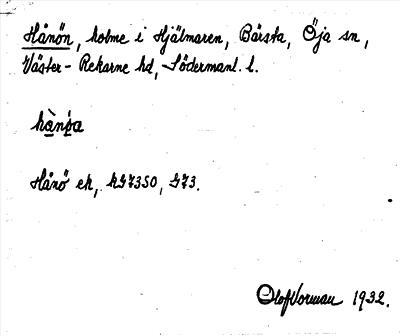 Hånön, holme i Hjälmaren, Bärsta, Öja sn,
Väster-Rekarne hd, Södermanl. l.
hå̀nö́a
Hånö ek, KG7350, G73.
Olof Vorman 1932.